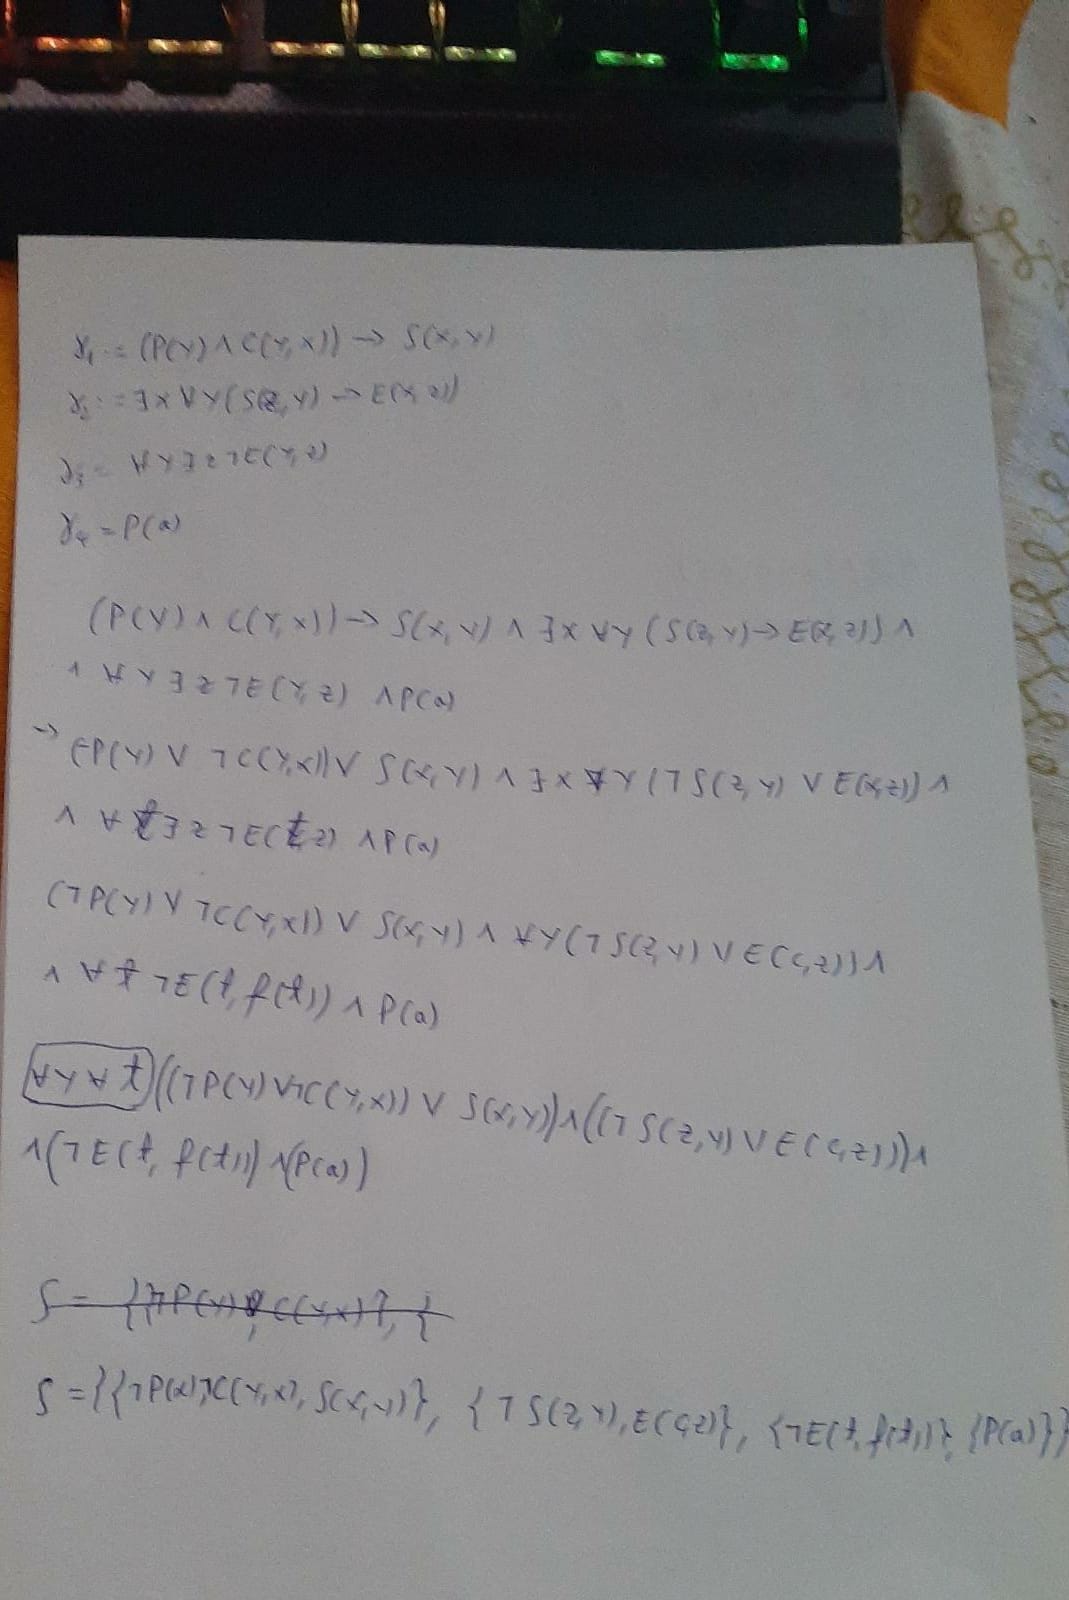 γ₁ = (P(y) ∧ C(y,x)) → S(x,y)
γ₂ := ∃x ∀y (S(z,y) → E(x,z))
γ₃ = ∀y ∃z ¬E(y,z)
γ₄ = P(a)
(P(y) ∧ C(y,x)) → S(x,y) ∧ ∃x ∀y (S(z,y) → E(x,z)) ∧
∧ ∀y ∃z ¬E(y,z) ∧ P(a)
→ (¬P(y) ∨ ¬C(y,x)) ∨ S(x,y) ∧ ∃x ∀y (¬S(z,y) ∨ E(x,z)) ∧
∧ ∀t ∃z ¬E(t,z) ∧ P(a)
(¬P(y) ∨ ¬C(y,x)) ∨ S(x,y) ∧ ∀y (¬S(z,y) ∨ E(c,z)) ∧
∧ ∀t ¬E(t, f(t)) ∧ P(a)
∀y ∀t ((¬P(y) ∨ ¬C(y,x)) ∨ S(x,y)) ∧ ((¬S(z,y) ∨ E(c,z))) ∧
∧ (¬E(t, f(t))) ∧ (P(a))
S = {{¬P(y), C(y,x)}, {
S = {{¬P(x), ¬C(y,x), S(x,y)}, {¬S(z,y), E(c,z)}, {¬E(t, f(t))}, {P(a)}}